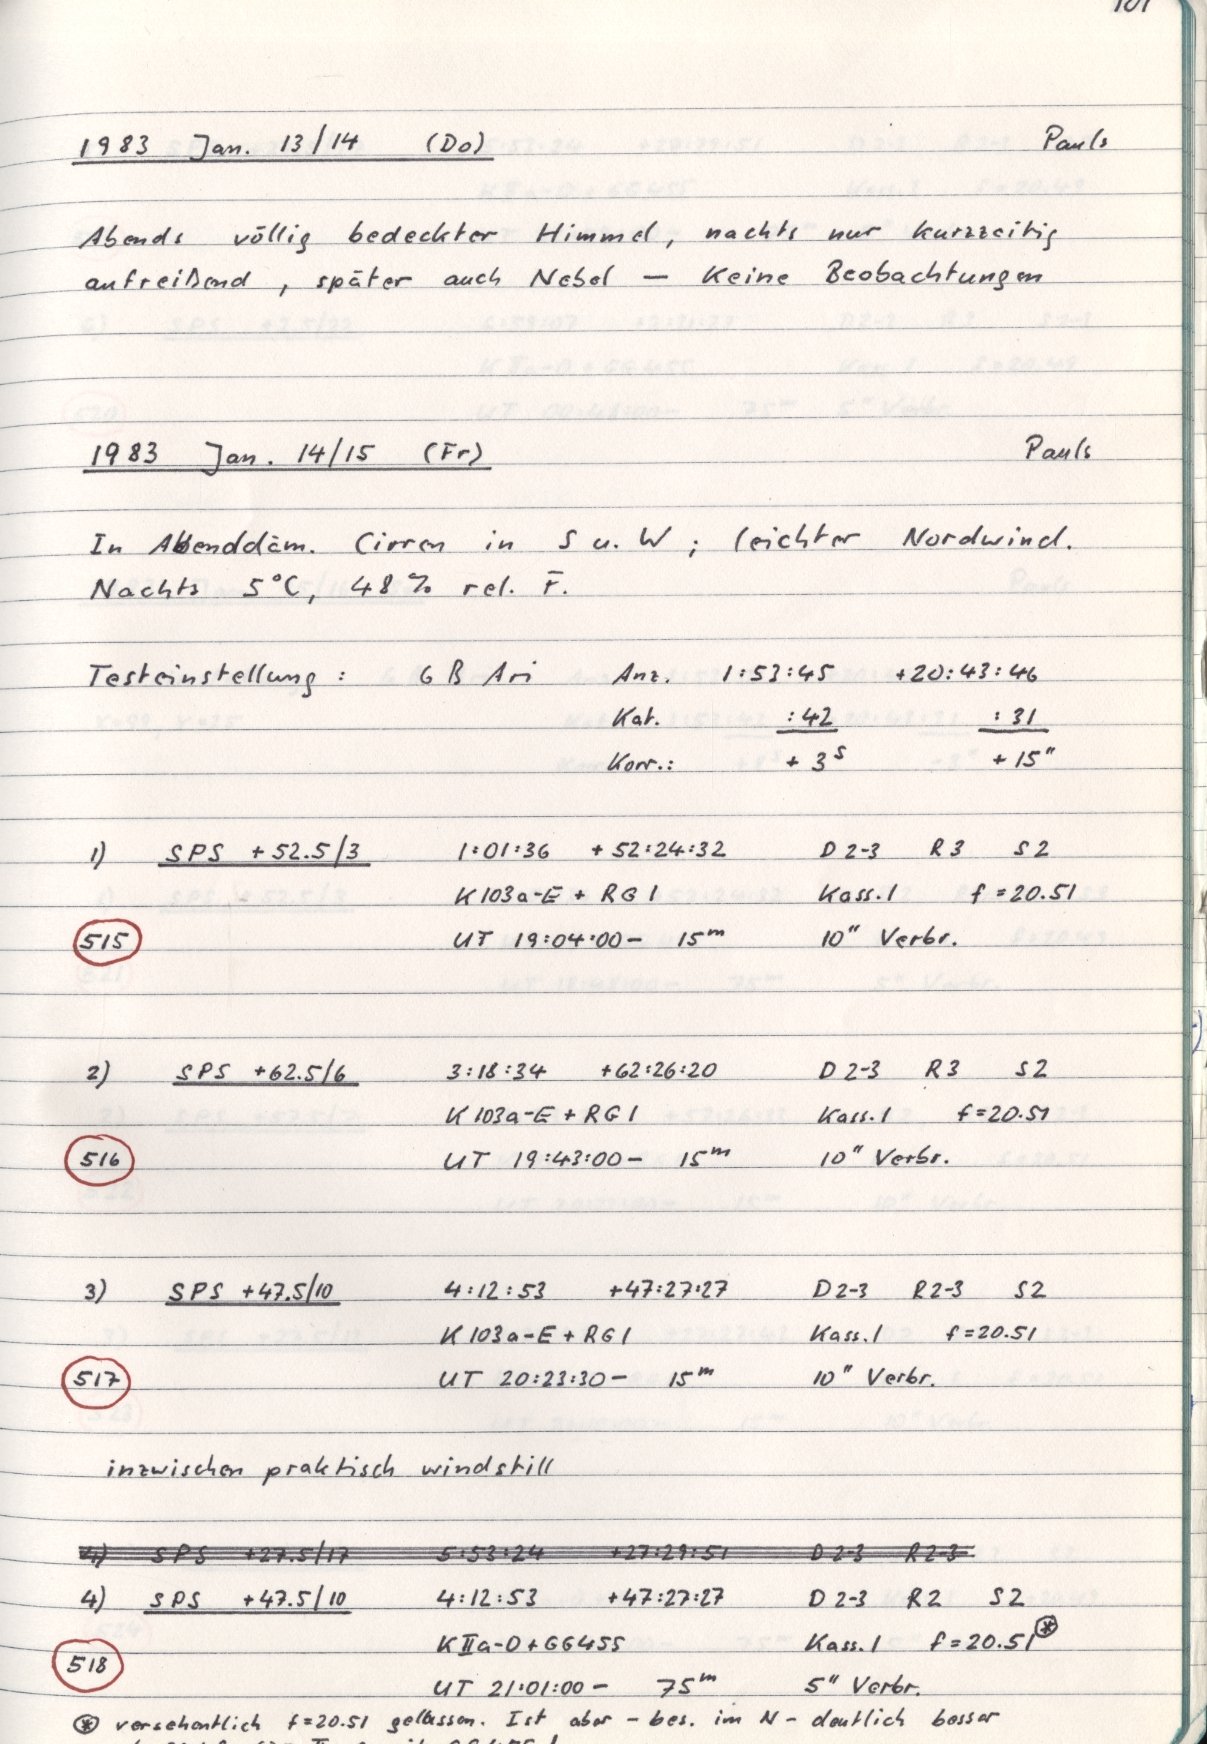 101
1983 Jan. 13/14 (Do) Pauls
Abends völlig bedeckter Himmel, nachts nur kurzzeitig
aufreißend, später auch Nebel — Keine Beobachtungen
1983 Jan. 14/15 (Fr) Pauls
In Abenddäm. Cirren in S u. W; leichter Nordwind.
Nachts 5°C, 48% rel. F.
Testeinstellung: 6 β Ari Anz. 1:53:45 +20:43:46
Kat. :42 :31
Korr.: +3ˢ +15"
1) SPS +52.5/3 1:01:36 +52:24:32 D2-3 R3 S2
K103a-E + RG1 Kass.1 f=20.51
515 UT 19:04:00 – 15ᵐ 10" Verbr.
2) SPS +62.5/6 3:18:34 +62:26:20 D2-3 R3 S2
K103a-E + RG1 Kass.1 f=20.51
516 UT 19:43:00 – 15ᵐ 10" Verbr.
3) SPS +47.5/10 4:12:53 +47:27:27 D2-3 R2-3 S2
K103a-E + RG1 Kass.1 f=20.51
517 UT 20:23:30 – 15ᵐ 10" Verbr.
inzwischen praktisch windstill
4) SPS +27.5/17 5:53:24 +27:29:51 D2-3 R2-3
4) SPS +47.5/10 4:12:53 +47:27:27 D2-3 R2 S2
KIIa-O + GG455 Kass.1 f=20.51 ⊛
518 UT 21:01:00 – 75ᵐ 5" Verbr.
⊛ versehentlich f=20.51 gelassen. Ist aber – bes. im N – deutlich besser